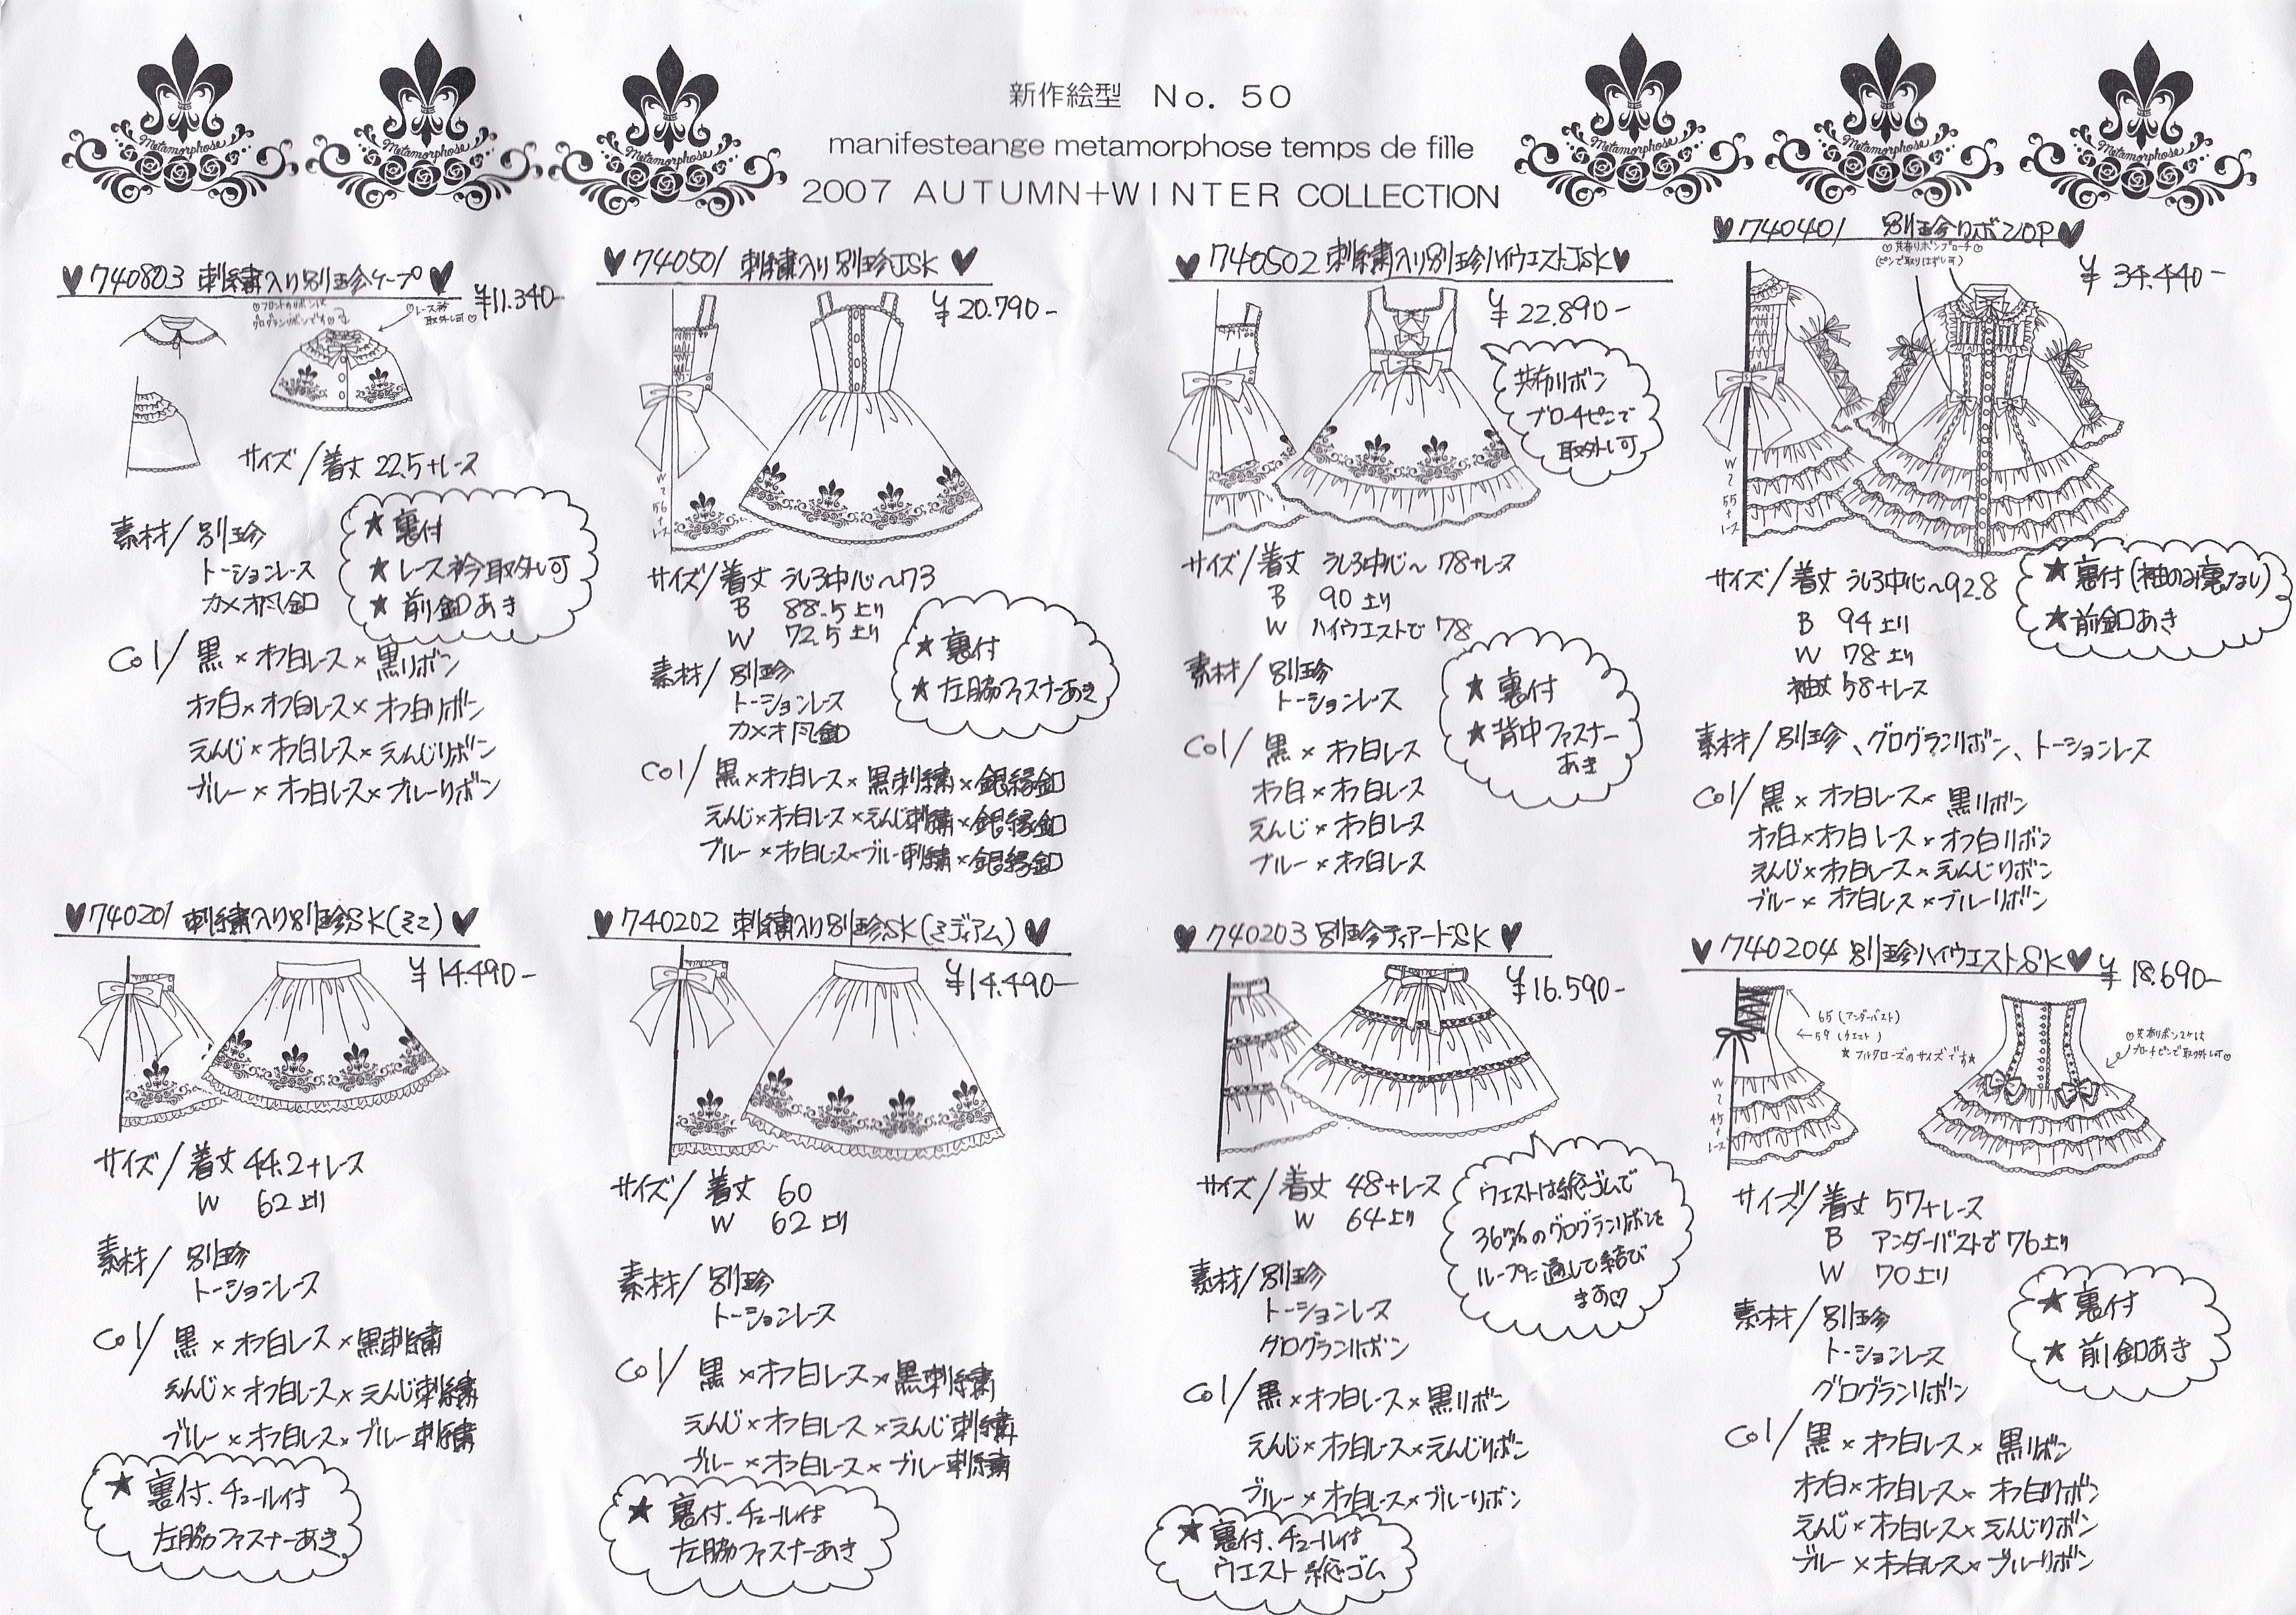 Metamorphose
Metamorphose
Metamorphose
Metamorphose
Metamorphose
Metamorphose
新作絵型 No. 50
manifesteange metamorphose temps de fille
2007 AUTUMN+WINTER COLLECTION
♥740803 刺繍入り別珍ケープ♥
¥11.340-
♡フロントのリボンは
グログランリボンです♡
♡レース衿
取外し可♡
サイズ/着丈 22.5+レース
素材/別珍
トーションレース
カメオ風釦
★裏付
★レース衿取外し可
★前釦あき
Col/黒×オフ白レース×黒リボン
オフ白×オフ白レース×オフ白リボン
えんじ×オフ白レース×えんじリボン
ブルー×オフ白レース×ブルーリボン
♥740501 刺繍入り別珍JSK♥
¥20.790-
W〜56+レース
サイズ/着丈 うしろ中心〜73
B 88.5上り
W 72.5上り
素材/別珍
トーションレース
カメオ風釦
★裏付
★左脇ファスナーあき
Col/黒×オフ白レース×黒刺繍×銀縁釦
えんじ×オフ白レース×えんじ刺繍×銀縁釦
ブルー×オフ白レース×ブルー刺繍×銀縁釦
♥740502 刺繍入り別珍ハイウエストJSK♥
¥22.890-
共布リボン
ブローチピンで
取外し可
サイズ/着丈 うしろ中心〜78+レース
B 90上り
W ハイウエストで78
素材/別珍
トーションレース
★裏付
★背中ファスナー
あき
Col/黒×オフ白レース
オフ白×オフ白レース
えんじ×オフ白レース
ブルー×オフ白レース
♥740401 別珍リボンOP♥
♡共布リボンブローチ♡
(ピンで取りはずし可)
¥34.440-
W〜55+レース
サイズ/着丈 うしろ中心〜92.8
B 94上り
W 78上り
袖丈 58+レース
★裏付(袖のみ裏なし)
★前釦あき
素材/別珍、グログランリボン、トーションレース
Col/黒×オフ白レース×黒リボン
オフ白×オフ白レース×オフ白リボン
えんじ×オフ白レース×えんじリボン
ブルー×オフ白レース×ブルーリボン
♥740201 刺繍入り別珍SK(ミニ)♥
¥14.490-
サイズ/着丈 44.2+レース
W 62上り
素材/別珍
トーションレース
Col/黒×オフ白レース×黒刺繍
えんじ×オフ白レース×えんじ刺繍
ブルー×オフ白レース×ブルー刺繍
★裏付、チュール付
左脇ファスナーあき
♥740202 刺繍入り別珍SK(ミディアム)♥
¥14.490-
サイズ/着丈 60
W 62上り
素材/別珍
トーションレース
Col/黒×オフ白レース×黒刺繍
えんじ×オフ白レース×えんじ刺繍
ブルー×オフ白レース×ブルー刺繍
★裏付、チュール付
左脇ファスナーあき
♥740203 別珍ティアードSK♥
¥16.590-
サイズ/着丈 48+レース
W 64上り
ウエストは総ゴムで
36m/mのグログランリボンを
ループに通して結び
ます♡
素材/別珍
トーションレース
グログランリボン
Col/黒×オフ白レース×黒リボン
えんじ×オフ白レース×えんじリボン
ブルー×オフ白レース×ブルーリボン
★裏付、チュール付
ウエスト総ゴム
♥740204 別珍ハイウエストSK♥
¥18.690-
65(アンダーバスト)
59(ウエスト)
★フルクローズのサイズです★
♡共布リボン2ケは
ブローチピンで取外し可♡
W〜45+レース
サイズ/着丈 57+レース
B アンダーバストで76上り
W 70上り
素材/別珍
トーションレース
グログランリボン
★裏付
★前釦あき
Col/黒×オフ白レース×黒リボン
オフ白×オフ白レース×オフ白リボン
えんじ×オフ白レース×えんじリボン
ブルー×オフ白レース×ブルーリボン